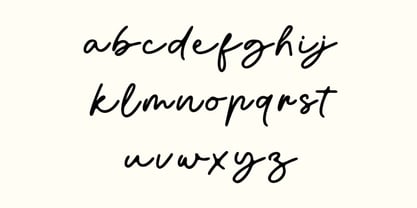 abcdefghij
klmnopqrst
uvwxyz